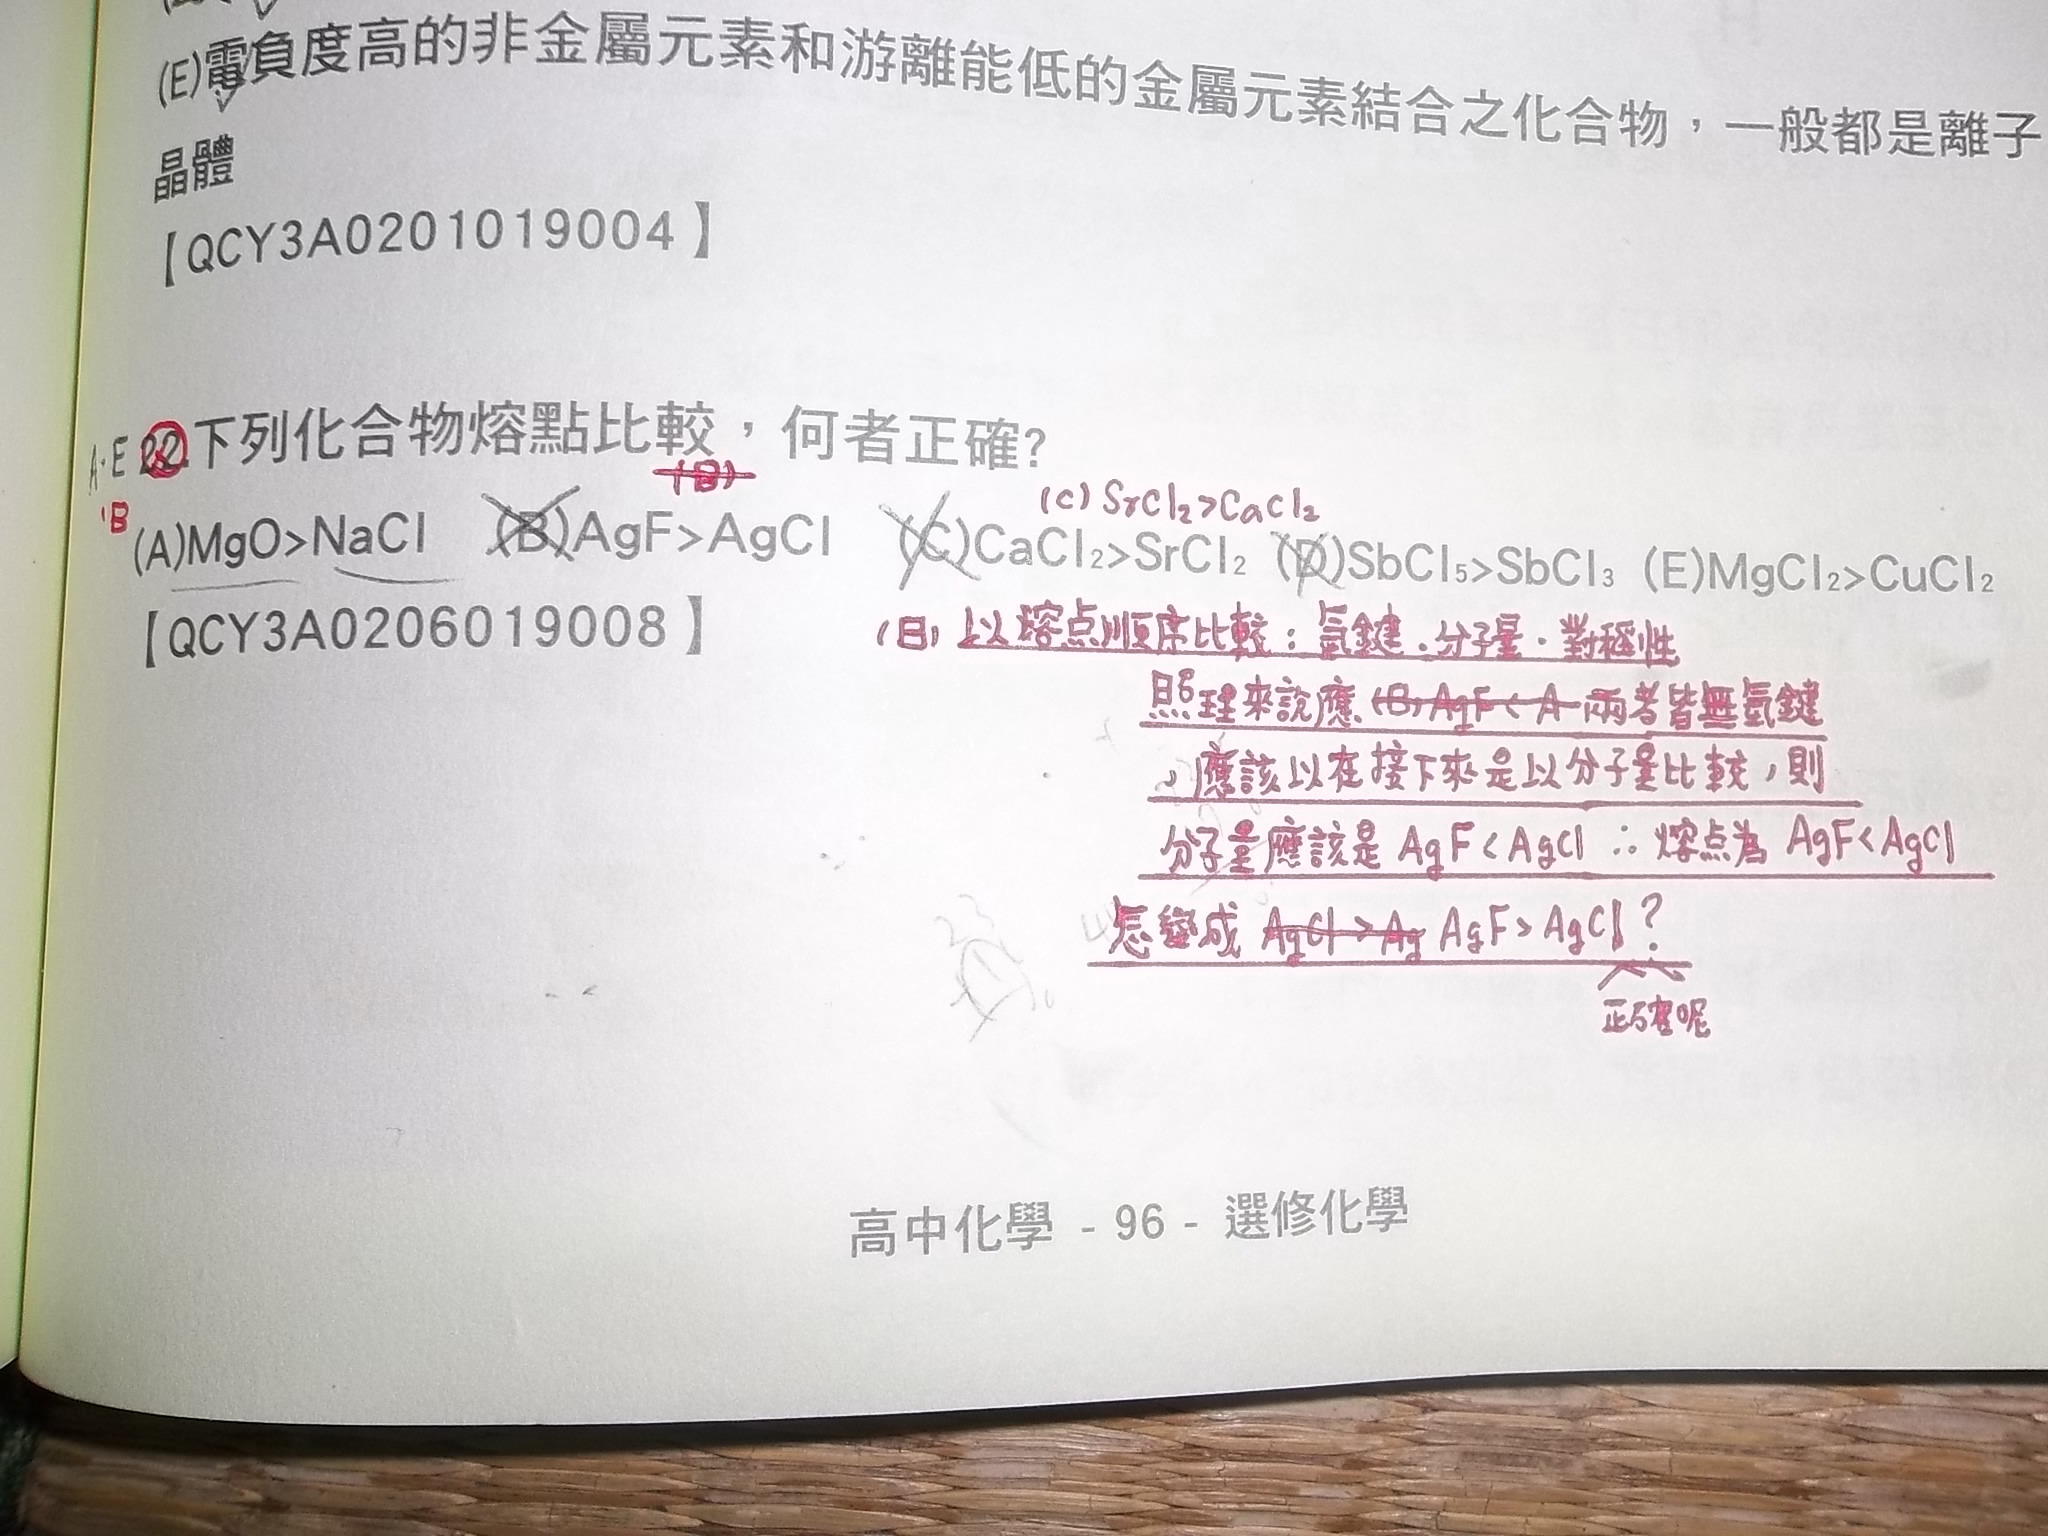 (E)電負度高的非金屬元素和游離能低的金屬元素結合之化合物，一般都是離子
晶體
【QCY3A0201019004】
A.E 22.下列化合物熔點比較，何者正確?
(B)
B
(C) SrCl₂>CaCl₂
(A)MgO>NaCl (B)AgF>AgCl (C)CaCl₂>SrCl₂ (D)SbCl₅>SbCl₃ (E)MgCl₂>CuCl₂
【QCY3A0206019008】
(B) 以熔点順序比較：氫鍵．分子量．對稱性
照理來說應(B) AgF < A 兩者皆無氫鍵
，應該以在接下來是以分子量比較，則
分子量應該是 AgF<AgCl ∴熔点為 AgF<AgCl
怎變成 AgCl > Ag AgF>AgCl?
正確呢
23
高中化學 - 96 - 選修化學